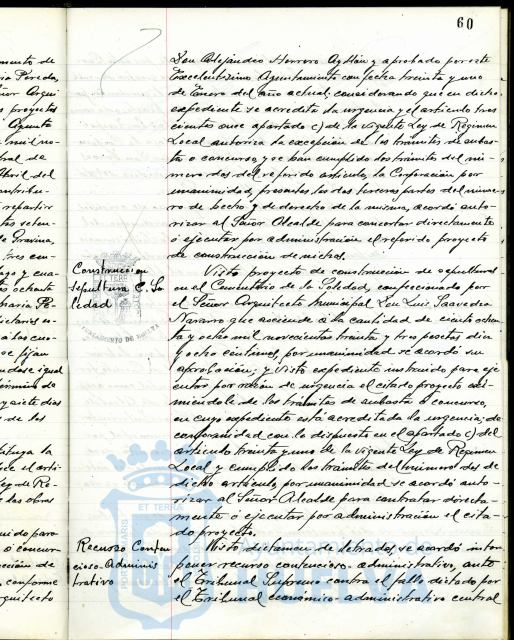 60
Don Alejandro Herrero Ayllón y aprobado por este
Excelentísimo Ayuntamiento con fecha treinta y uno
de Enero del año actual, considerando que en dicho
expediente se acredita la urgencia y el artículo tres
cientos once apartado c) de la vigente Ley de Régimen
Local autoriza la excepción de los trámites de subas-
ta o concurso, y se han cumplido los trámites del nú-
mero dos del referido artículo, la Corporación por
unanimidad, presentes las dos terceras partes del núme-
ro de hecho y de derecho de la misma, acordó auto-
rizar al Señor Alcalde para concertar directamente
o ejecutar por administración el referido proyecto
de construcción de nichos.
Construcción
sepultura C. So
ledad
Visto proyecto de construcción de sepulturas
en el Cementerio de la Soledad, confeccionado por
el Señor Arquitecto Municipal Don Luis Saavedra
Navarro que asciende a la cantidad de ciento ochen
ta y ocho mil novecientas treinta y tres pesetas diez
y ocho céntimos, por unanimidad se acordó su
aprobación; y Visto expediente instruido para eje
cutar por razón de urgencia el citado proyecto exi-
miéndole de los trámites de subasta o concurso,
en cuyo expediente está acreditada la urgencia; de
conformidad con lo dispuesto en el apartado c) del
artículo treinta y uno de la vigente Ley de Régimen
Local y cumplido los trámites del número dos de
dicho artículo, por unanimidad se acordó auto-
rizar al Señor Alcalde para contratar directa-
mente o ejecutar por administración el cita-
do proyecto.
Recurso Conten
cioso-Adminis
trativo
Visto dictamen de letrados, se acordó inter
poner recurso contencioso-administrativo, ante
el Tribunal Supremo contra el fallo dictado por
el Tribunal económico-administrativo central